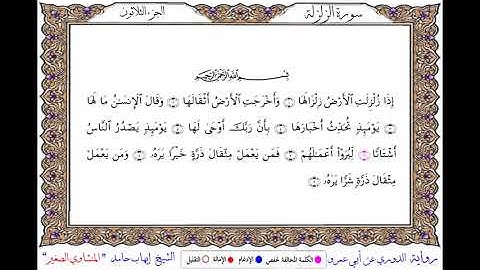 سورة الزلزلة الجزء الثلاثون
بِسْمِ اللَّهِ الرَّحْمَٰنِ الرَّحِيمِ
إِذَا زُلْزِلَتِ ٱلْأَرْضُ زِلْزَالَهَا ۝ وَأَخْرَجَتِ ٱلْأَرْضُ أَثْقَالَهَا ۝ وَقَالَ ٱلْإِنسَٰنُ مَا لَهَا
۝ يَوْمَئِذٍ تُحَدِّثُ أَخْبَارَهَا ۝ بِأَنَّ رَبَّكَ أَوْحَىٰ لَهَا ۝ يَوْمَئِذٍ يَصْدُرُ ٱلنَّاسُ
أَشْتَاتًا ۝ لِّيُرَوْا۟ أَعْمَٰلَهُمْ ۝ فَمَن يَعْمَلْ مِثْقَالَ ذَرَّةٍ خَيْرًا يَرَهُۥ ۝ وَمَن يَعْمَلْ
مِثْقَالَ ذَرَّةٍ شَرًّا يَرَهُۥ ۝
رواية الدوري عن أبي عمرو الكلمة المخالفة لحفص الإدغام الإمالة التقليل الشيخ إيهاب حامد "المنشاوي الصغير"